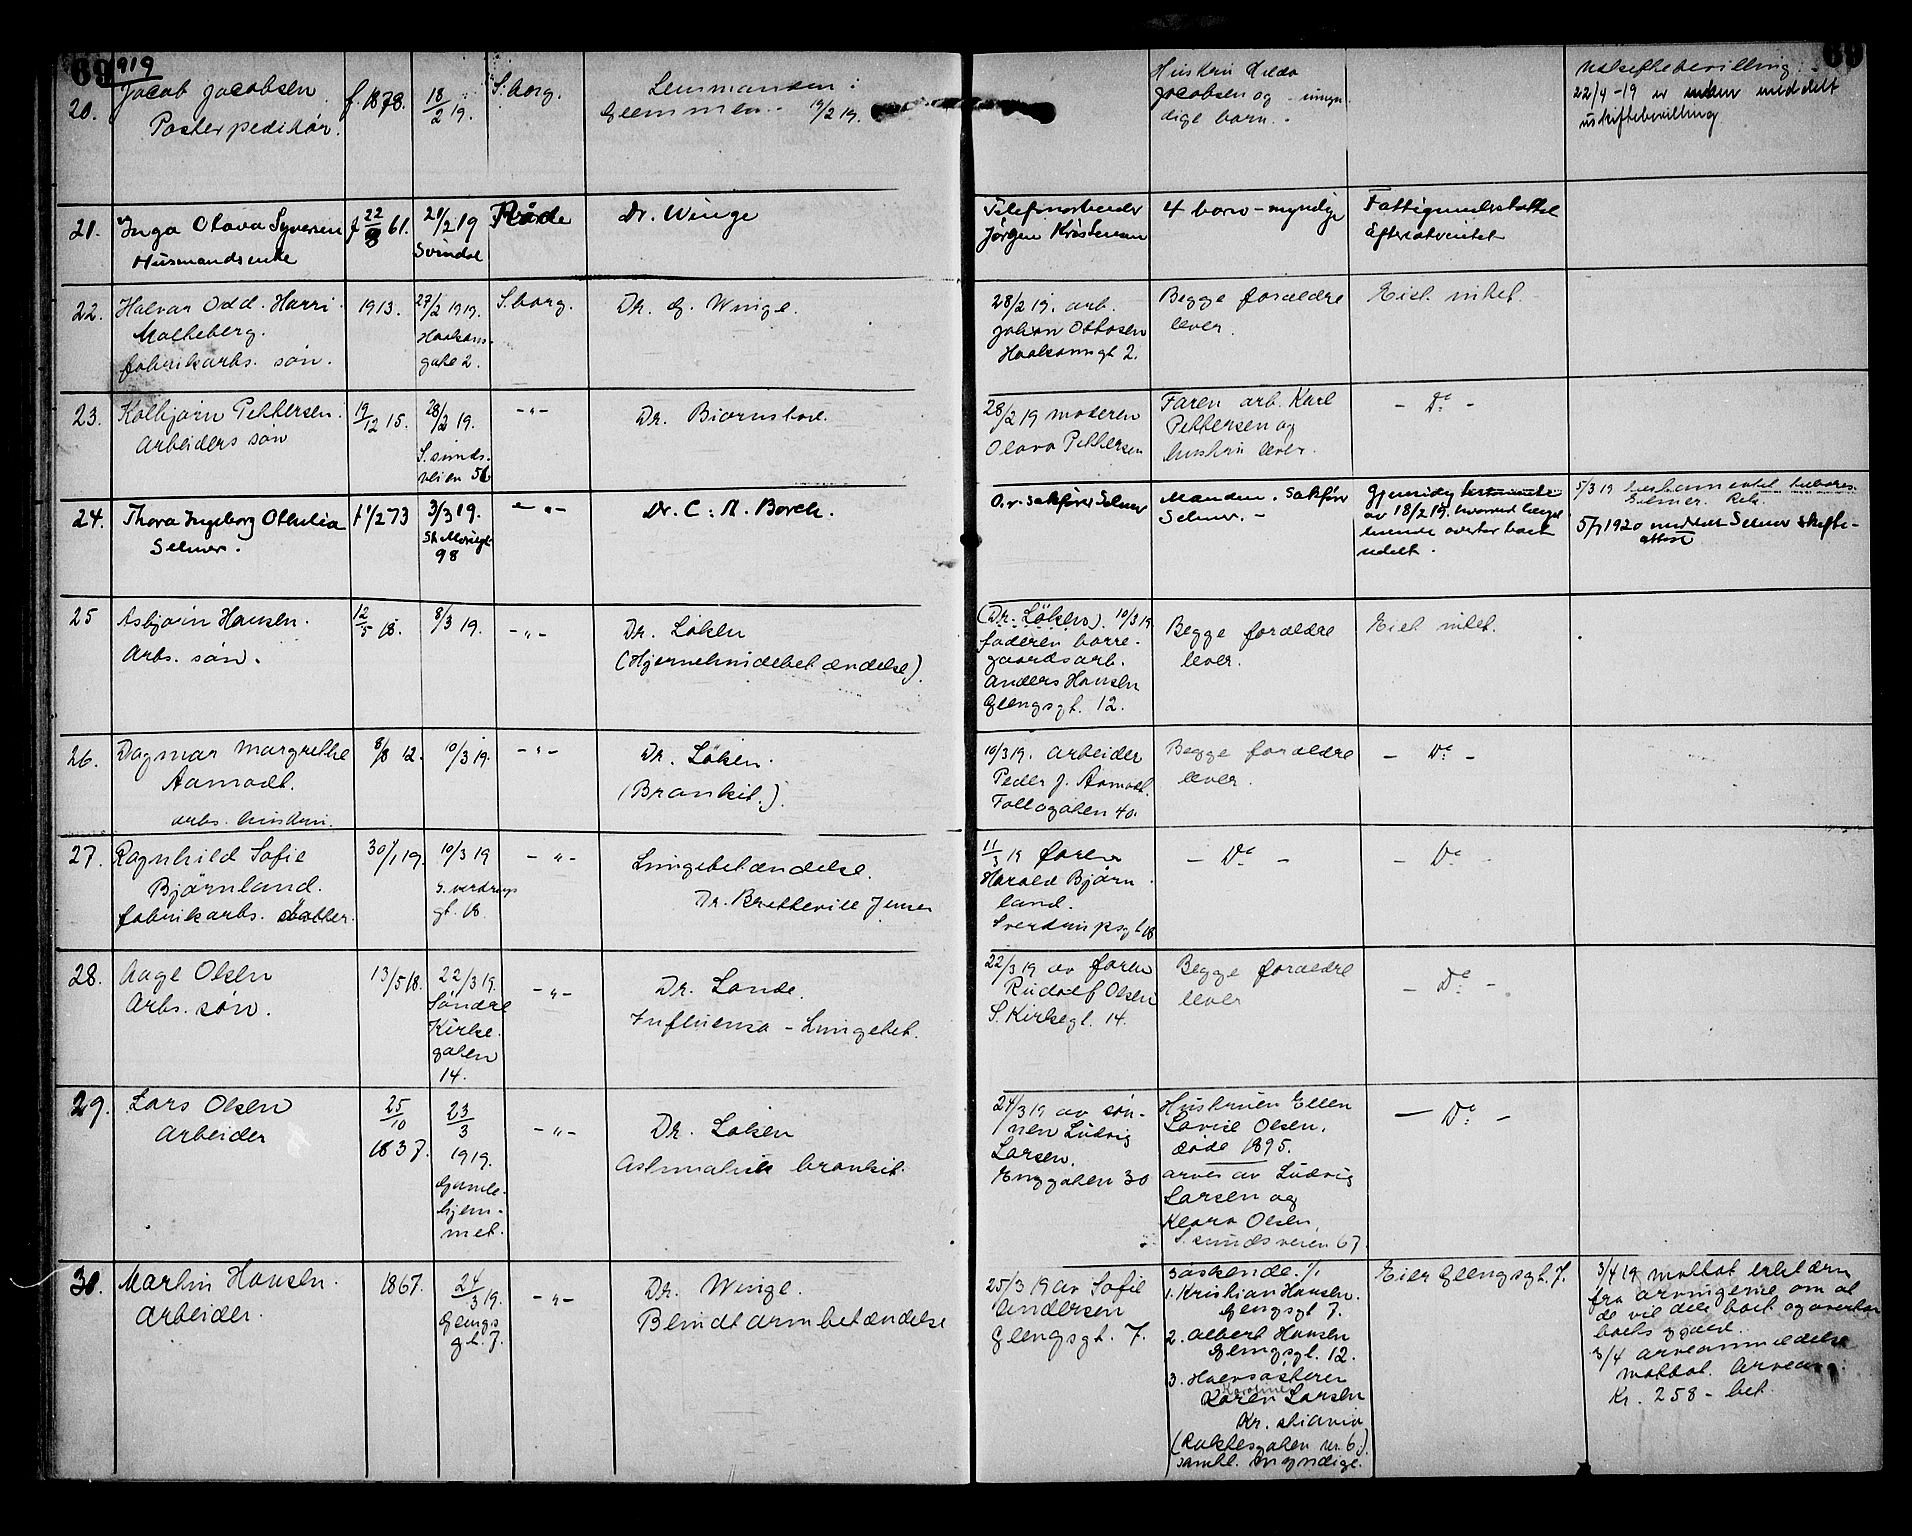 69 919
20. Jacob Jacobsen
Postexpeditør.
f. 1878.
18/2 19.
S.borg.
Lensmanden i
Glemmen. 19/2 19.
Hustru Hilda
Jacobsen og umyn
dige barn.
69
22/4-19 er meddelt
uskiftebevilling
21. Inga Olava Syversen
Husmandsenke
f 22/8 61.
21/2 19
Svindal
Råde
Dr. Winge
Telefonarbeider
Jørgen Kristensen
4 barn - myndige
Fattigunderstøttet
Efterlatvintet
22. Halvar Odd. Harri
Malteberg.
fabrikarbs. søn.
1913.
27/2 1919.
Haakons-
gate 2.
S.borg.
Dr. G. Winge.
28/2 19. arb.
Johan Ottosen
Haakonsgt 2.
Begge forældre
lever.
Eiet. intet.
23. Kolbjørn Pettersen.
Arbeiders søn
19/12 15.
28/2 19.
S.sunds-
veien 56
-"-
Dr. Bjørnstad.
28/2 19 moderen
Olava Pettersen
Faren arb. Karl
Pettersen og
hustru lever.
- Do -
24. Thora Ingeborg Othilia
Selmer.
11/2 73
3/3 19.
St. Mariegt
98
- " -
Dr. C. A. Borch.
O.r.sakfører Selmer
Manden. Sakfører
Selmer. -
Gjensidig testamente
av 18/2 19. hvorved længst
levende overtar boet
udelt.
5/3 19 testamentet tilbakes.
Selmer. Rek.
5/7 1920 meddelt Selmer skifte-
attest
25 Asbjørn Hansen.
Arbs. søn.
12/5 18.
8/3 19.
-"-
Dr. Løken
(Hjernehindebetændelse).
(Dr. Løken). 10/3 19
faderen borre-
gaardsarb.
Anders Hansen
Glengsgt. 12.
Begge forældre
lever.
Eiet intet.
26. Dagmar Margrethe
Aamodt.
arbs. hustru.
8/8 12.
10/3 19.
-"-
Dr. Løken.
(Bronkit.)
10/3 19. arbeider
Peder J. Aamodt.
Follogaten 40.
Begge forældre
lever.
- Do -
27. Ragnhild Sofie
Bjørnland.
fabrikarbs. datter.
30/1 19.
10/3 19
S.verdrups
gt. 18
- " -
Lungebetændelse.
Dr. Bretteville Jensen
11/3 19 faren
Harald Bjørn
land.
Sverdrupsgt 18
- Do -
- Do -
28. Aage Olsen
Arbs. søn.
13/5 18.
22/3 19.
Søndre
Kirke-
gaten
14.
-"-
Dr. Lande.
Influensa - Lungebet.
22/3 19 av faren
Rudolf Olsen
S. Kirkegt. 14.
Begge forældre
lever
- Do -
29. Lars Olsen
Arbeider
25/10
1837.
23/3
1919.
Gamle-
hjem-
met.
-"-
Dr. Løken
Asthmatisk bronkit.
24/3 19 av søn-
nen Ludvig
Larsen.
Enggaten 30
Hustruen Ellen
Lovise Olsen,
døde 1895.
arves av Ludvig
Larsen og
Klara Olsen,
S.sundsveien 67
- Do -
30. Martin Hansen.
Arbeider.
1867.
24/3 19.
Glengs
gt. 7.
-"-
Dr. Winge.
Blindtarmbetændelse
25/3 19 av Sofie
Andersen
Glengsgt. 7.
Søskende. /.
1. Kristian Hansen.
Glengsgt 7.
2. Albert Hansen
Glengsgt. 12.
3. Halvsøsteren
Karoline
Karen Larsen
Kr.stiania
( nr. 6.)
samtl. myndige.
Eier Glengsgt. 7.
3/4 19 mottat erklæring
fra arvingerne om at
de vil dele boet og overtar
boets gjæld.
3/4 arveanmeldelse
mottat. Arveavg:
Kr. 258 - bet.